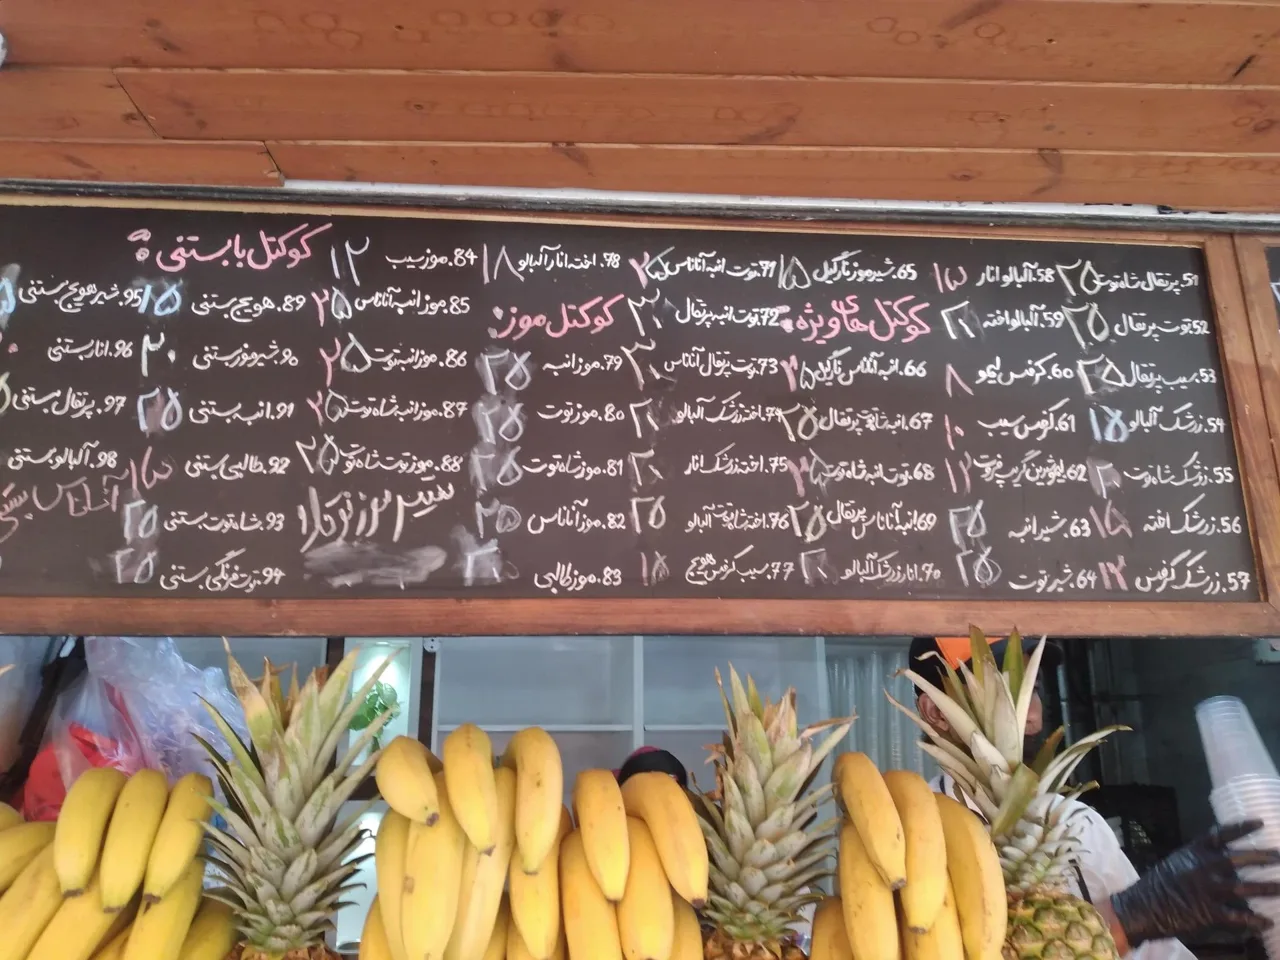 51. پرتقال شاه توت ۲۵
52. توت پرتقال ۲۵
53. سیب پرتقال ۲۵
54. زرشک آلبالو ۱۵
55. زرشک شاه توت ۲۰
56. زرشک اخته
57. زرشک کرفس ۱۲
58. آلبالو انار ۱۵
59. آلبالو اخته ۲۰
60. کرفس لیمو ۸
61. کرفس سیب ۱۰
62. لیموشیرین گریپ فروت ۱۲
63. شیر انبه ۲۵
64. شیر توت ۲۵
65. شیر موز نارگیل ۱۵
کوکتل های ویژه:
66. انبه آناناس نارگیل ۳۵
67. انبه شاتوت پرتقال ۲۵
68. توت انبه شاه توت
69. انبه آناناس پرتقال ۲۵
70. انار زرشک آلبالو ۲۰
71. توت انبه آناناس
72. توت انبه پرتقال ۳۰
73. توت پرتقال آناناس ۳۰
74. اخته زرشک آلبالو ۲۰
75. اخته زرشک انار ۲۰
76. اخته شاه توت آلبالو ۲۵
77. سیب کرفس هویج ۱۵
78. اخته انار آلبالو ۱۸
کوکتل موز:
79. موز انبه ۲۵
80. موز توت ۲۵
81. موز شاه توت ۲۵
82. موز آناناس ۲۵
83. موز طالبی ۲۰
84. موز سیب ۱۲
85. موز انبه آناناس ۲۵
86. موز انبه توت ۲۵
87. موز انبه شاه توت ۲۵
88. موز توت شاه توت ۲۵
شیر موز نوتلا
کوکتل با بستنی:
89. هویج بستنی ۱۵
90. شیر موز بستنی ۲۰
91. انبه بستنی ۲۵
92. طالبی بستنی ۱۵
93. شاه توت بستنی ۲۵
94. توت فرنگی بستنی ۲۵
95. شیر هویج بستنی
96. انار بستنی
97. پرتقال بستنی
98. آلبالو بستنی
آناناس بستنی